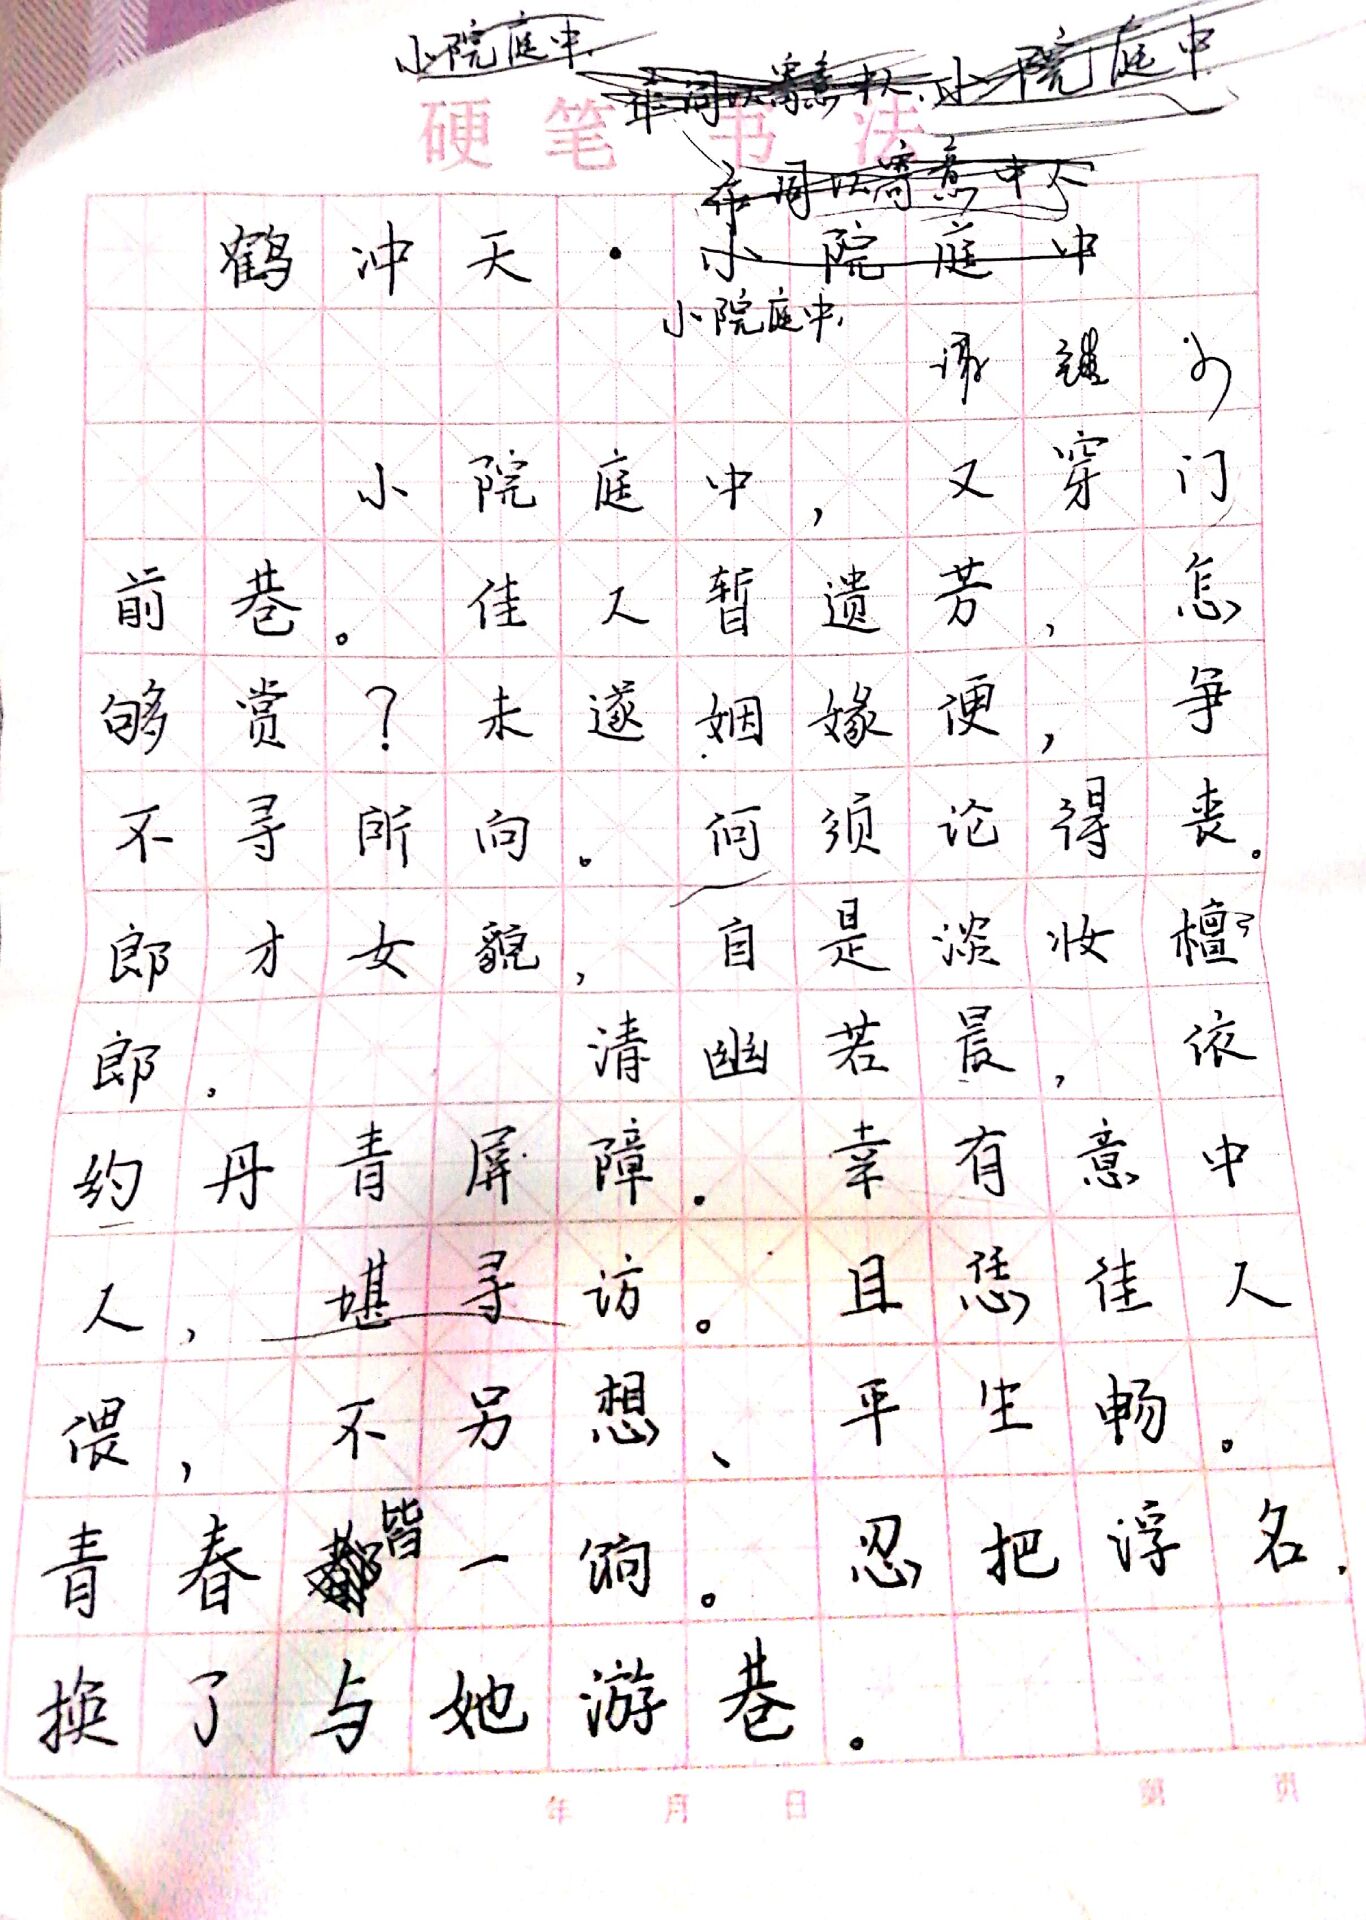 小院庭中
小院庭中
硬笔书法
寄意中人
鹤冲天·小院庭中
小院庭中
小院庭中,又穿门
前巷。佳人暂遗芳,怎
够赏?未遂姻缘便,争
不寻所向。何须论得丧。
郎才女貌,自是淡妆檀
郎。清幽若晨,依
约丹青屏障。幸有意中
人,堪寻访。且恁佳人
偎,不另想、平生畅。
青春皆一饷。忍把浮名,
换了与她游巷。
年月日 第 页